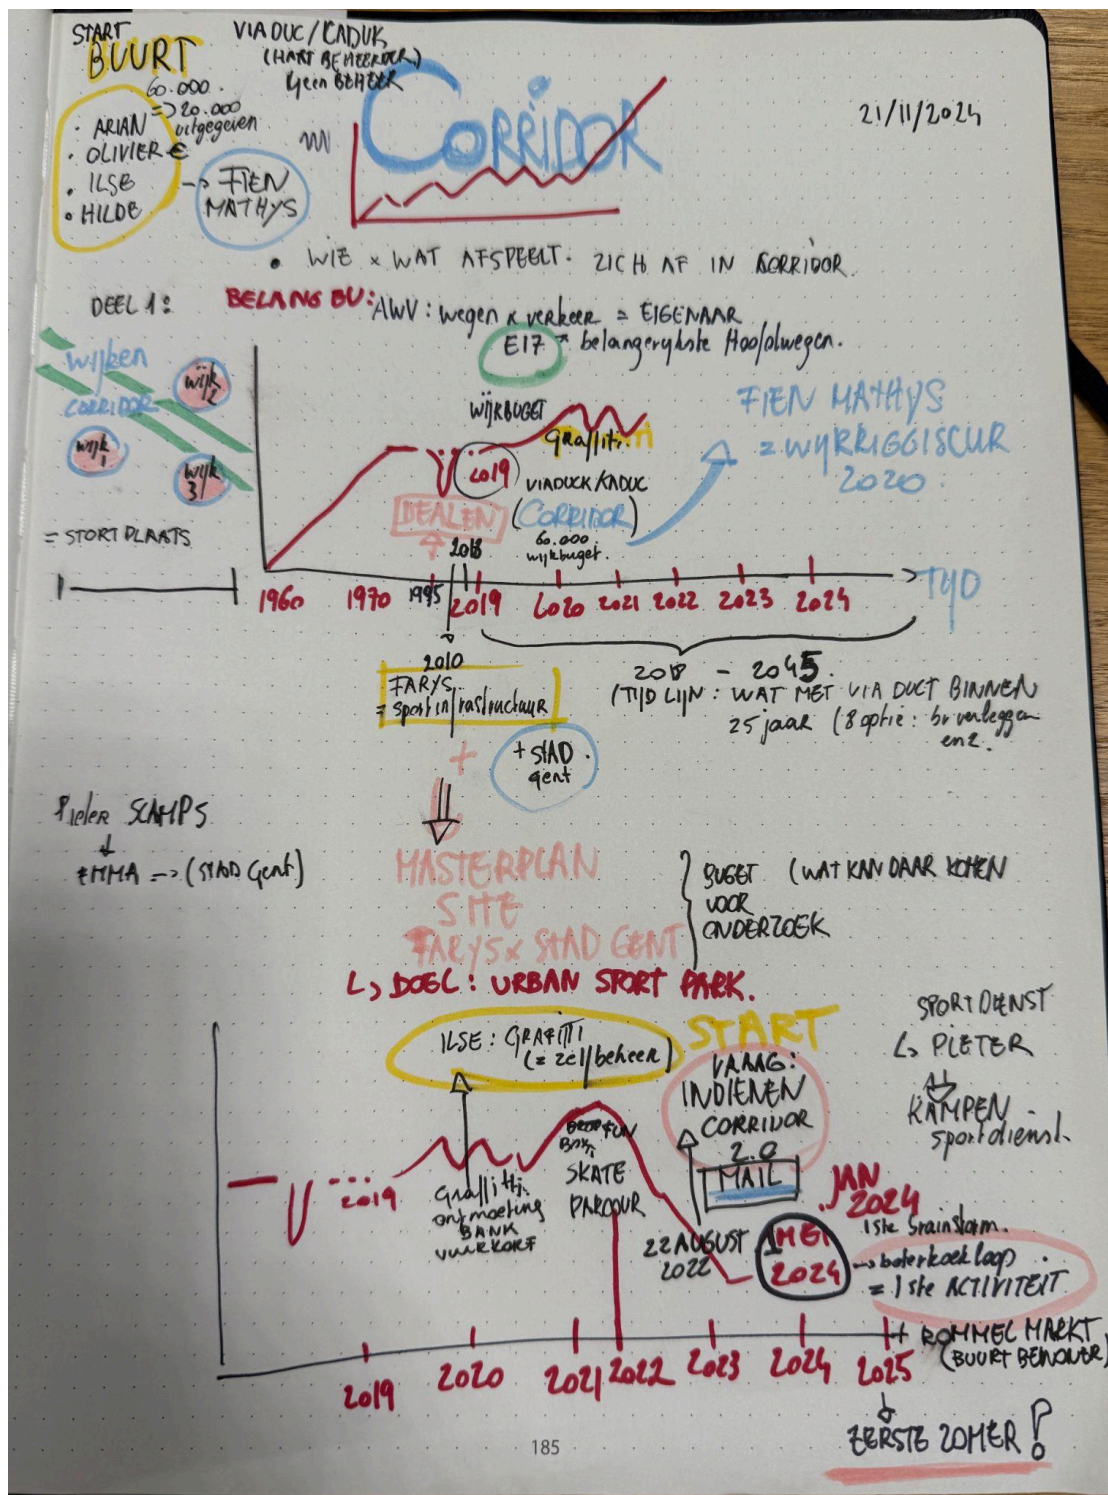 START
BUURT
VIADUC/KADUK
(HART BEHEERDER)
Geen BEHEER
60.000
=> 20.000
uitgegeven
€
• ARIAN
• OLIVIER
• ILSE
• HILDE
-> FIEN
MATHYS
CORRIDOR
21/11/2024
• WIE x WAT AFSPEELT. ZICH AF IN KORRIDOR.
DEEL 1:
BELANG BU:
AWV: wegen x verkeer = EIGENAAR
E17
belangerykste Hoofdwegen.
wijken
CORRIDOR
wijk 2
wijk 1
wijk 3
= STORTPLAATS
WIJKBUGET
Graffiti
2019
VIADUCK/KADUC
DEALEN
(CORRIDOR)
60.000
wijkbuget.
FIEN MATHYS
= WYKRIGGISEUR
2020.
2018
1960 1970 1995 2019 2020 2021 2022 2023 2024
TYD
2010
FARYS
= sportinfrastructuur
+ STAD
gent
2018 - 2045.
(TIJD LIJN: WAT MET VIA DUCT BINNEN
25 jaar (8 optie: bv verleggen
enz.
Pieter SCAMPS
EMMA -> (STAD Gent)
+
MASTERPLAN
SITE
FARYS x STAD GENT
BUGET (WAT KAN DAAR KOMEN
VOOR
ONDERZOEK
DOEL: URBAN SPORT PARK.
ILSE: GRAFITTI
(= zelfbeheer)
START
VRAAG:
INDIENEN
CORRIDOR
2.0
MAIL
SPORTDIENST
PIETER
KAMPEN
sportdienst.
2019
Graffitti.
ontmoeting
BANK
VUURKORF
SKATE
PARCOUR
22 AUGUST
2022
JAN
2024
1ste brainstorm.
1 MEI
2024
-> boterkoek loop
= 1ste ACTIVITEIT
+ ROMMEL MARKT
(BUURT BEWONER)
2019 2020 2021 2022 2023 2024 2025
EERSTE ZOMER!
185